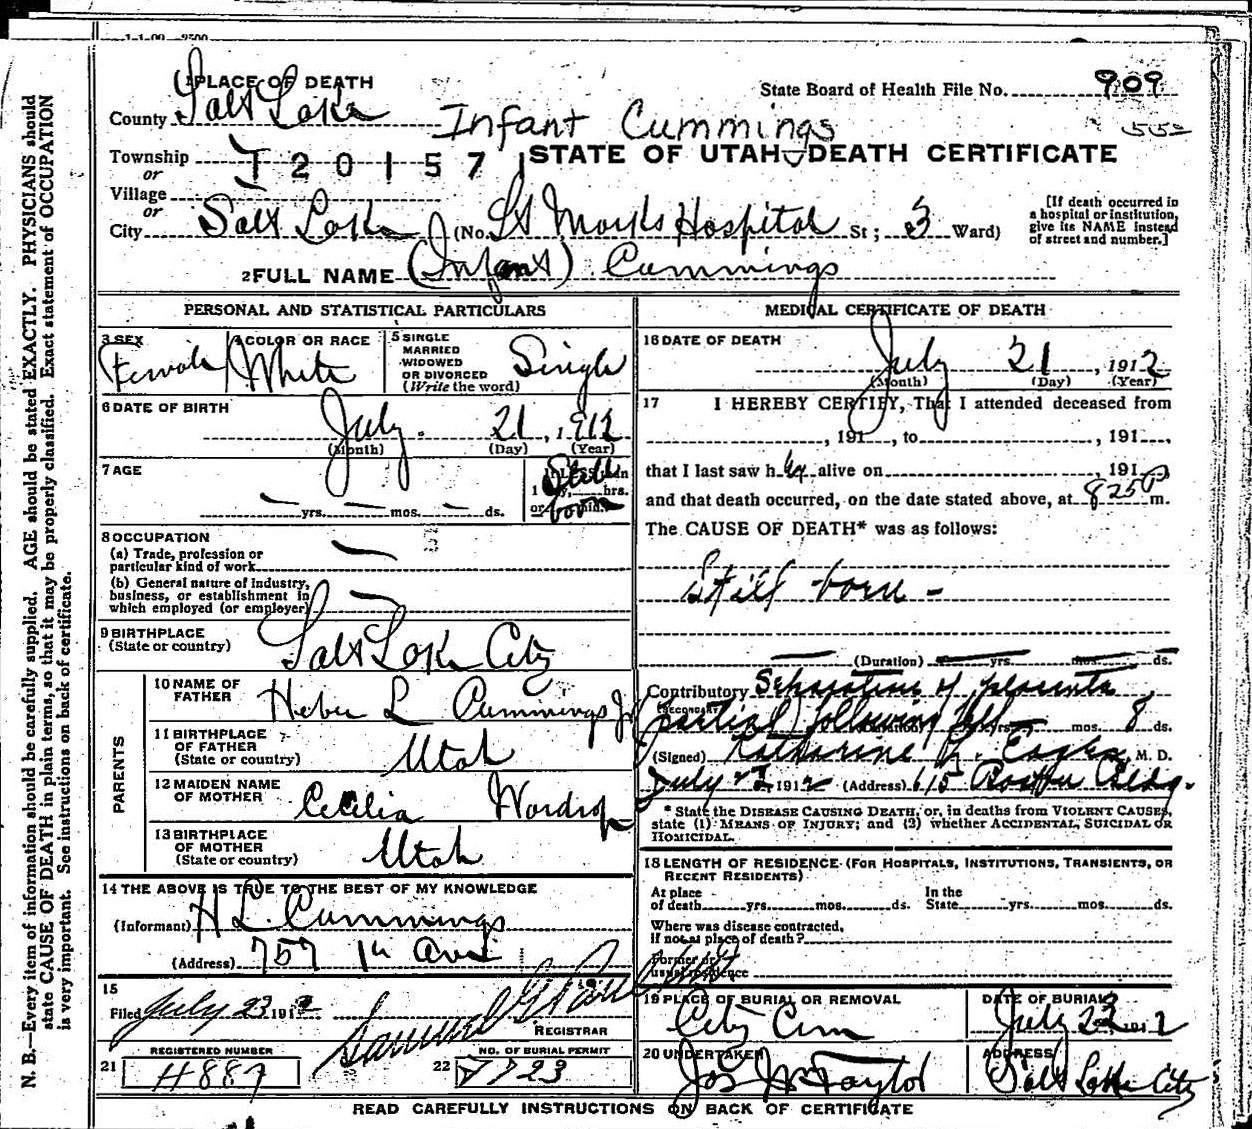 1 PLACE OF DEATH
State Board of Health File No. 909
County Salt Lake
Infant Cummings
552
Township
or
I 20157
STATE OF UTAH—DEATH CERTIFICATE
Village
or
City Salt Lake (No. St Marks Hospital St; 3 Ward)
[If death occurred in
a hospital or institution,
give its NAME instead
of street and number.]
2 FULL NAME (Infant) Cummings
PERSONAL AND STATISTICAL PARTICULARS
3 SEX
Female
4 COLOR OR RACE
White
5 SINGLE
MARRIED
WIDOWED
OR DIVORCED
(Write the word)
Single
6 DATE OF BIRTH
July 21, 1912
(Month) (Day) (Year)
7 AGE
— yrs. — mos. — ds.
Still
born
8 OCCUPATION
(a) Trade, profession or
particular kind of work —
(b) General nature of Industry,
business, or establishment in
which employed (or employer) —
9 BIRTHPLACE
(State or country)
Salt Lake City
PARENTS
10 NAME OF
FATHER
Heber L Cummings Jr
11 BIRTHPLACE
OF FATHER
(State or country)
Utah
12 MAIDEN NAME
OF MOTHER
Cecelia Wardrop
13 BIRTHPLACE
OF MOTHER
(State or country)
Utah
14 THE ABOVE IS TRUE TO THE BEST OF MY KNOWLEDGE
(Informant) H L. Cummings
(Address) 757 1st Ave
15
Filed July 23 1912
Samuel G Paul
REGISTRAR
21 REGISTERED NUMBER
H887
22 NO. OF BURIAL PERMIT
7723
MEDICAL CERTIFICATE OF DEATH
16 DATE OF DEATH
July 21, 1912
(Month) (Day) (Year)
17 I HEREBY CERTIFY, That I attended deceased from
, 191 , to , 191 ,
that I last saw h er alive on , 191
and that death occurred, on the date stated above, at 825 P m.
The CAUSE OF DEATH* was as follows:
Still born -
(Duration) yrs. mos. ds.
Contributory Separation of placenta
(SECONDARY)
(partial) following fall mos. 8 ds.
(Signed) Katharine M. D.
July 22 1912 (Address) 615 Bldg.
* State the DISEASE CAUSING DEATH, or, in deaths from VIOLENT CAUSES,
state (1) MEANS OF INJURY; and (2) whether ACCIDENTAL, SUICIDAL OR
HOMICIDAL.
18 LENGTH OF RESIDENCE (FOR HOSPITALS, INSTITUTIONS, TRANSIENTS, OR
RECENT RESIDENTS)
At place
of death yrs. mos. ds.
In the
State yrs. mos. ds.
Where was disease contracted,
if not at place of death?
Former or
usual residence
19 PLACE OF BURIAL OR REMOVAL
City Cem
DATE OF BURIAL
July 23 1912
20 UNDERTAKER
Jos Wm Taylor
ADDRESS
Salt Lake City
READ CAREFULLY INSTRUCTIONS ON BACK OF CERTIFICATE
N. B.—Every item of information should be carefully supplied. AGE should be stated EXACTLY. PHYSICIANS should
state CAUSE OF DEATH in plain terms, so that it may be properly classified. Exact statement of OCCUPATION
is very important. See instructions on back of certificate.